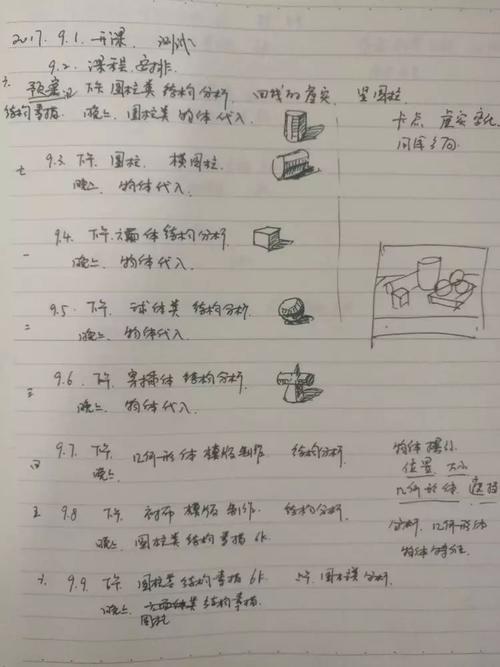 2017. 9.1. 开课. 测试
9.2. 课程安排.
六 下午 圆柱类 结构分析. 曲线的虚实. 竖圆柱.
结构素描. 晚上. 圆柱类 物体代入.
卡点 虚实变化
七 9.3 下午. 圆柱. 横圆柱.
晚上. 物体代入.
一 9.4. 下午. 六面体结构分析.
晚上. 物体代入.
二 9.5. 下午. 球体类 结构分析.
晚上. 物体代入.
三 9.6. 下午. 穿插体 结构分析.
晚上. 物体代入.
四 9.7. 下午. 几何形体 模版制作. 结构分析.
晚上.
物体
位置 大小
几何形体
五 9.8 下午. 衬布 模版 制作. 结构分析.
晚上. 圆柱类 结构素描 6k.
分析. 几何形体
物体特征.
六 9.9. 下午. 圆柱类 结构素描 6k.
晚上. 六面体类 结构素描.
圆柱